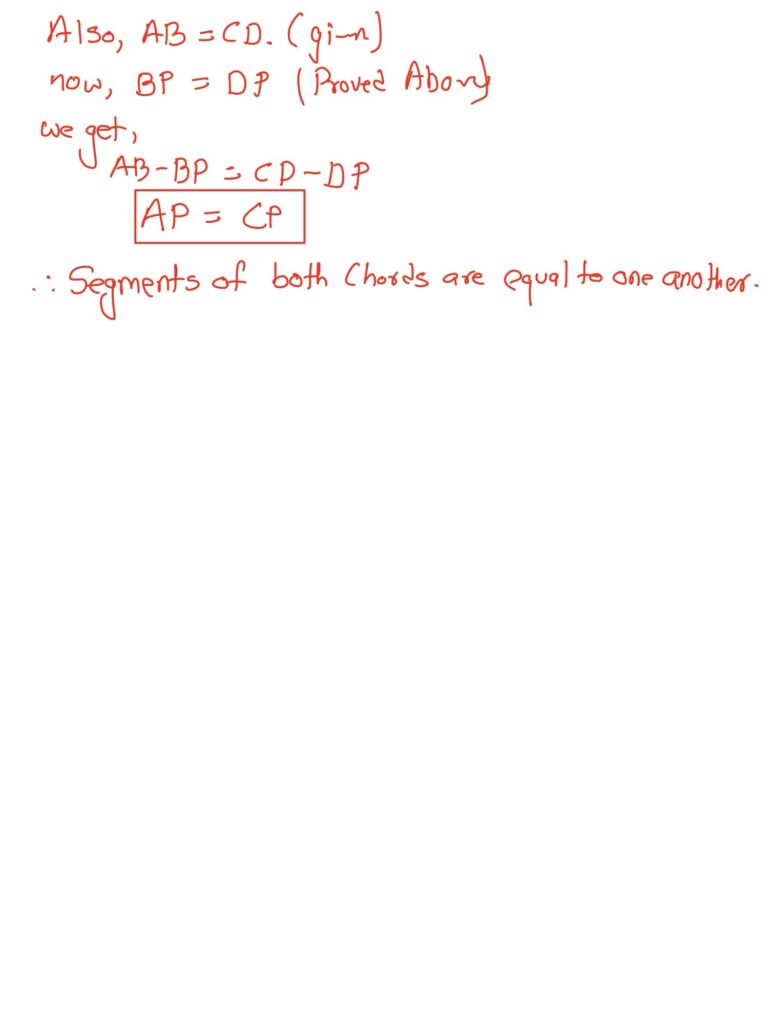 Also, AB = CD. (given)
now, BP = DP (Proved Above)
we get,
AB - BP = CD - DP
AP = CP
∴ Segments of both Chords are equal to one another.